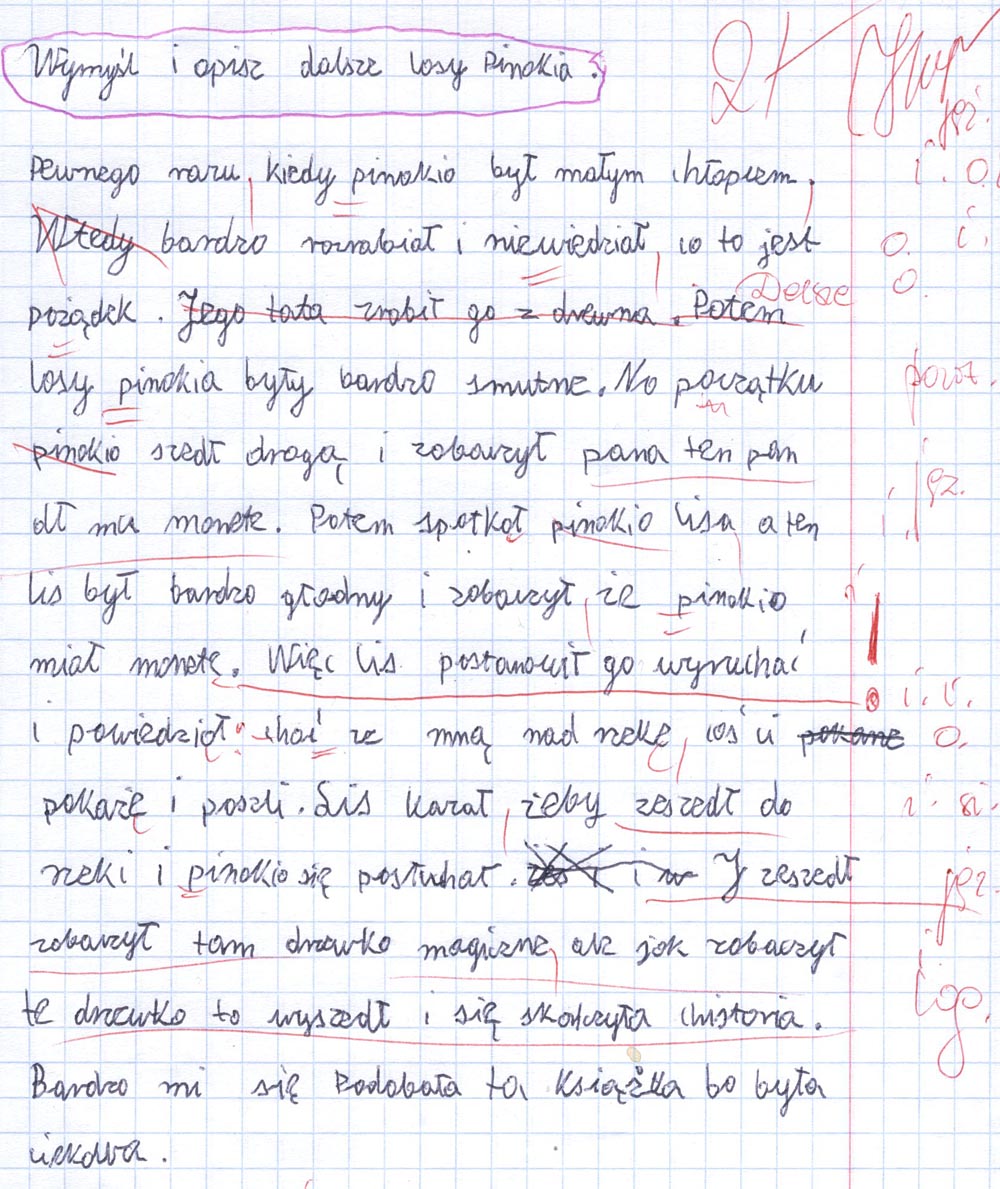 Wymyśl i opisz dalsze losy Pinokia.
2+
jęz.
Pewnego razu, kiedy pinokio był małym chłopcem,
i. O.
Wtedy bardzo rozrabiał i niewiedział, co to jest
O. i.
pożądek. Jego tata zrobił go z drewna. Potem
Dalsze O.
losy pinokia były bardzo smutne. Na początku
powt.
pinokio szedł drogą i zobaczył pana ten pan
dł mu monete. Potem spotkał pinokio lisa a ten
i. jęz.
lis był bardzo głodny i zobaczył, że pinokio
miał monetę. Więc lis postanowił go wyruchać
! i. i.
i powiedział: chać ze mną nad rzekę, coś ci pokane
O.
pokażę i poszli. Lis kazał, żeby zeszedł do
rzeki i pinokio się posłuchał. i I zeszedł
jęz.
zobaczył tam drzewko magiczne, ale jak zobaczył
te drzewko to wyszedł i się skończyła chistoria.
Bardzo mi się Podobała ta książka bo była
ciekawa.